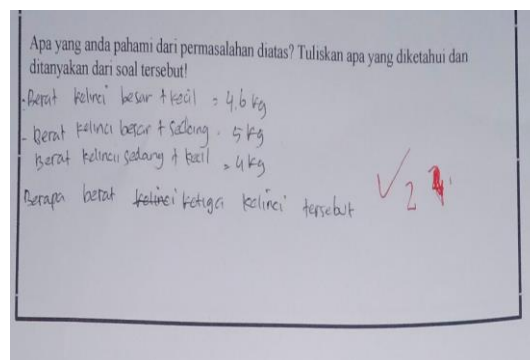 Apa yang anda pahami dari permasalahan diatas? Tuliskan apa yang diketahui dan
ditanyakan dari soal tersebut!
- Berat kelinci besar + kecil = 4.6 kg
- Berat kelinci besar + sedang = 5 kg
Berat kelinci sedang + kecil = 4 kg
Berapa berat ketiga kelinci tersebut
2